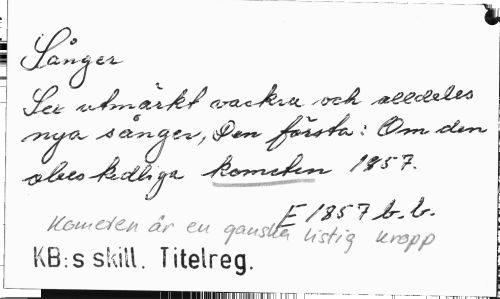 Sånger
Sex utmärkt vackra och alldeles
nya sånger, Den första: Om den
obeskedliga kometen 1857.
E 1857 b.b.
Kometen är en ganska listig kropp
KB:s skill. Titelreg.